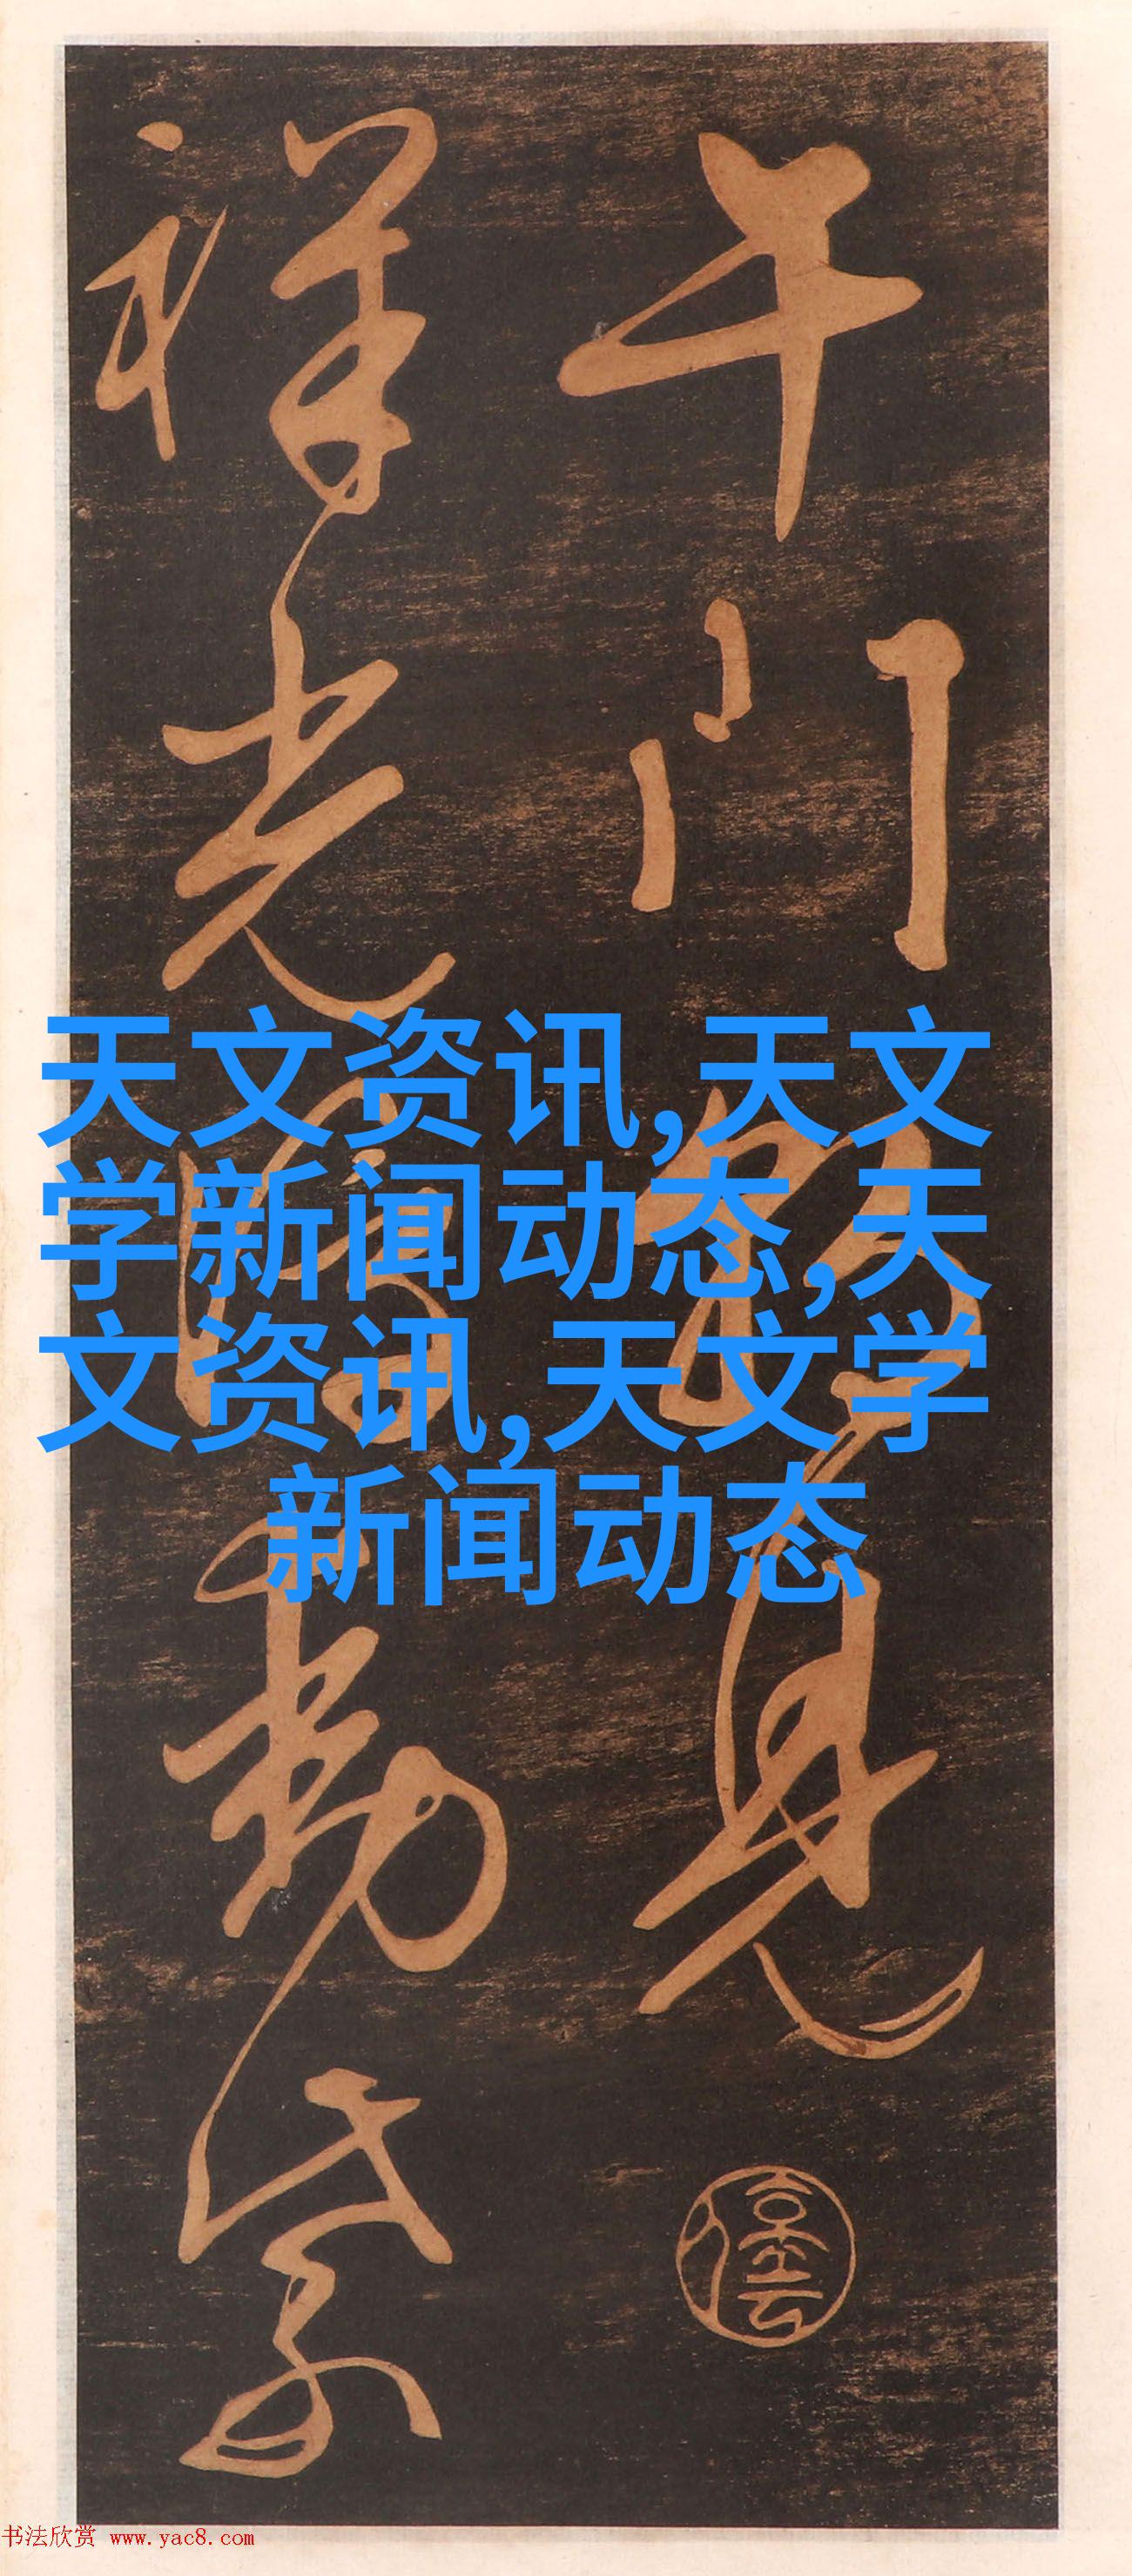 天文资讯,天文
学新闻动态,天
文资讯,天文学
新闻动态
午门
见
祥光
勤紫
书法欣赏 www.yac8.com